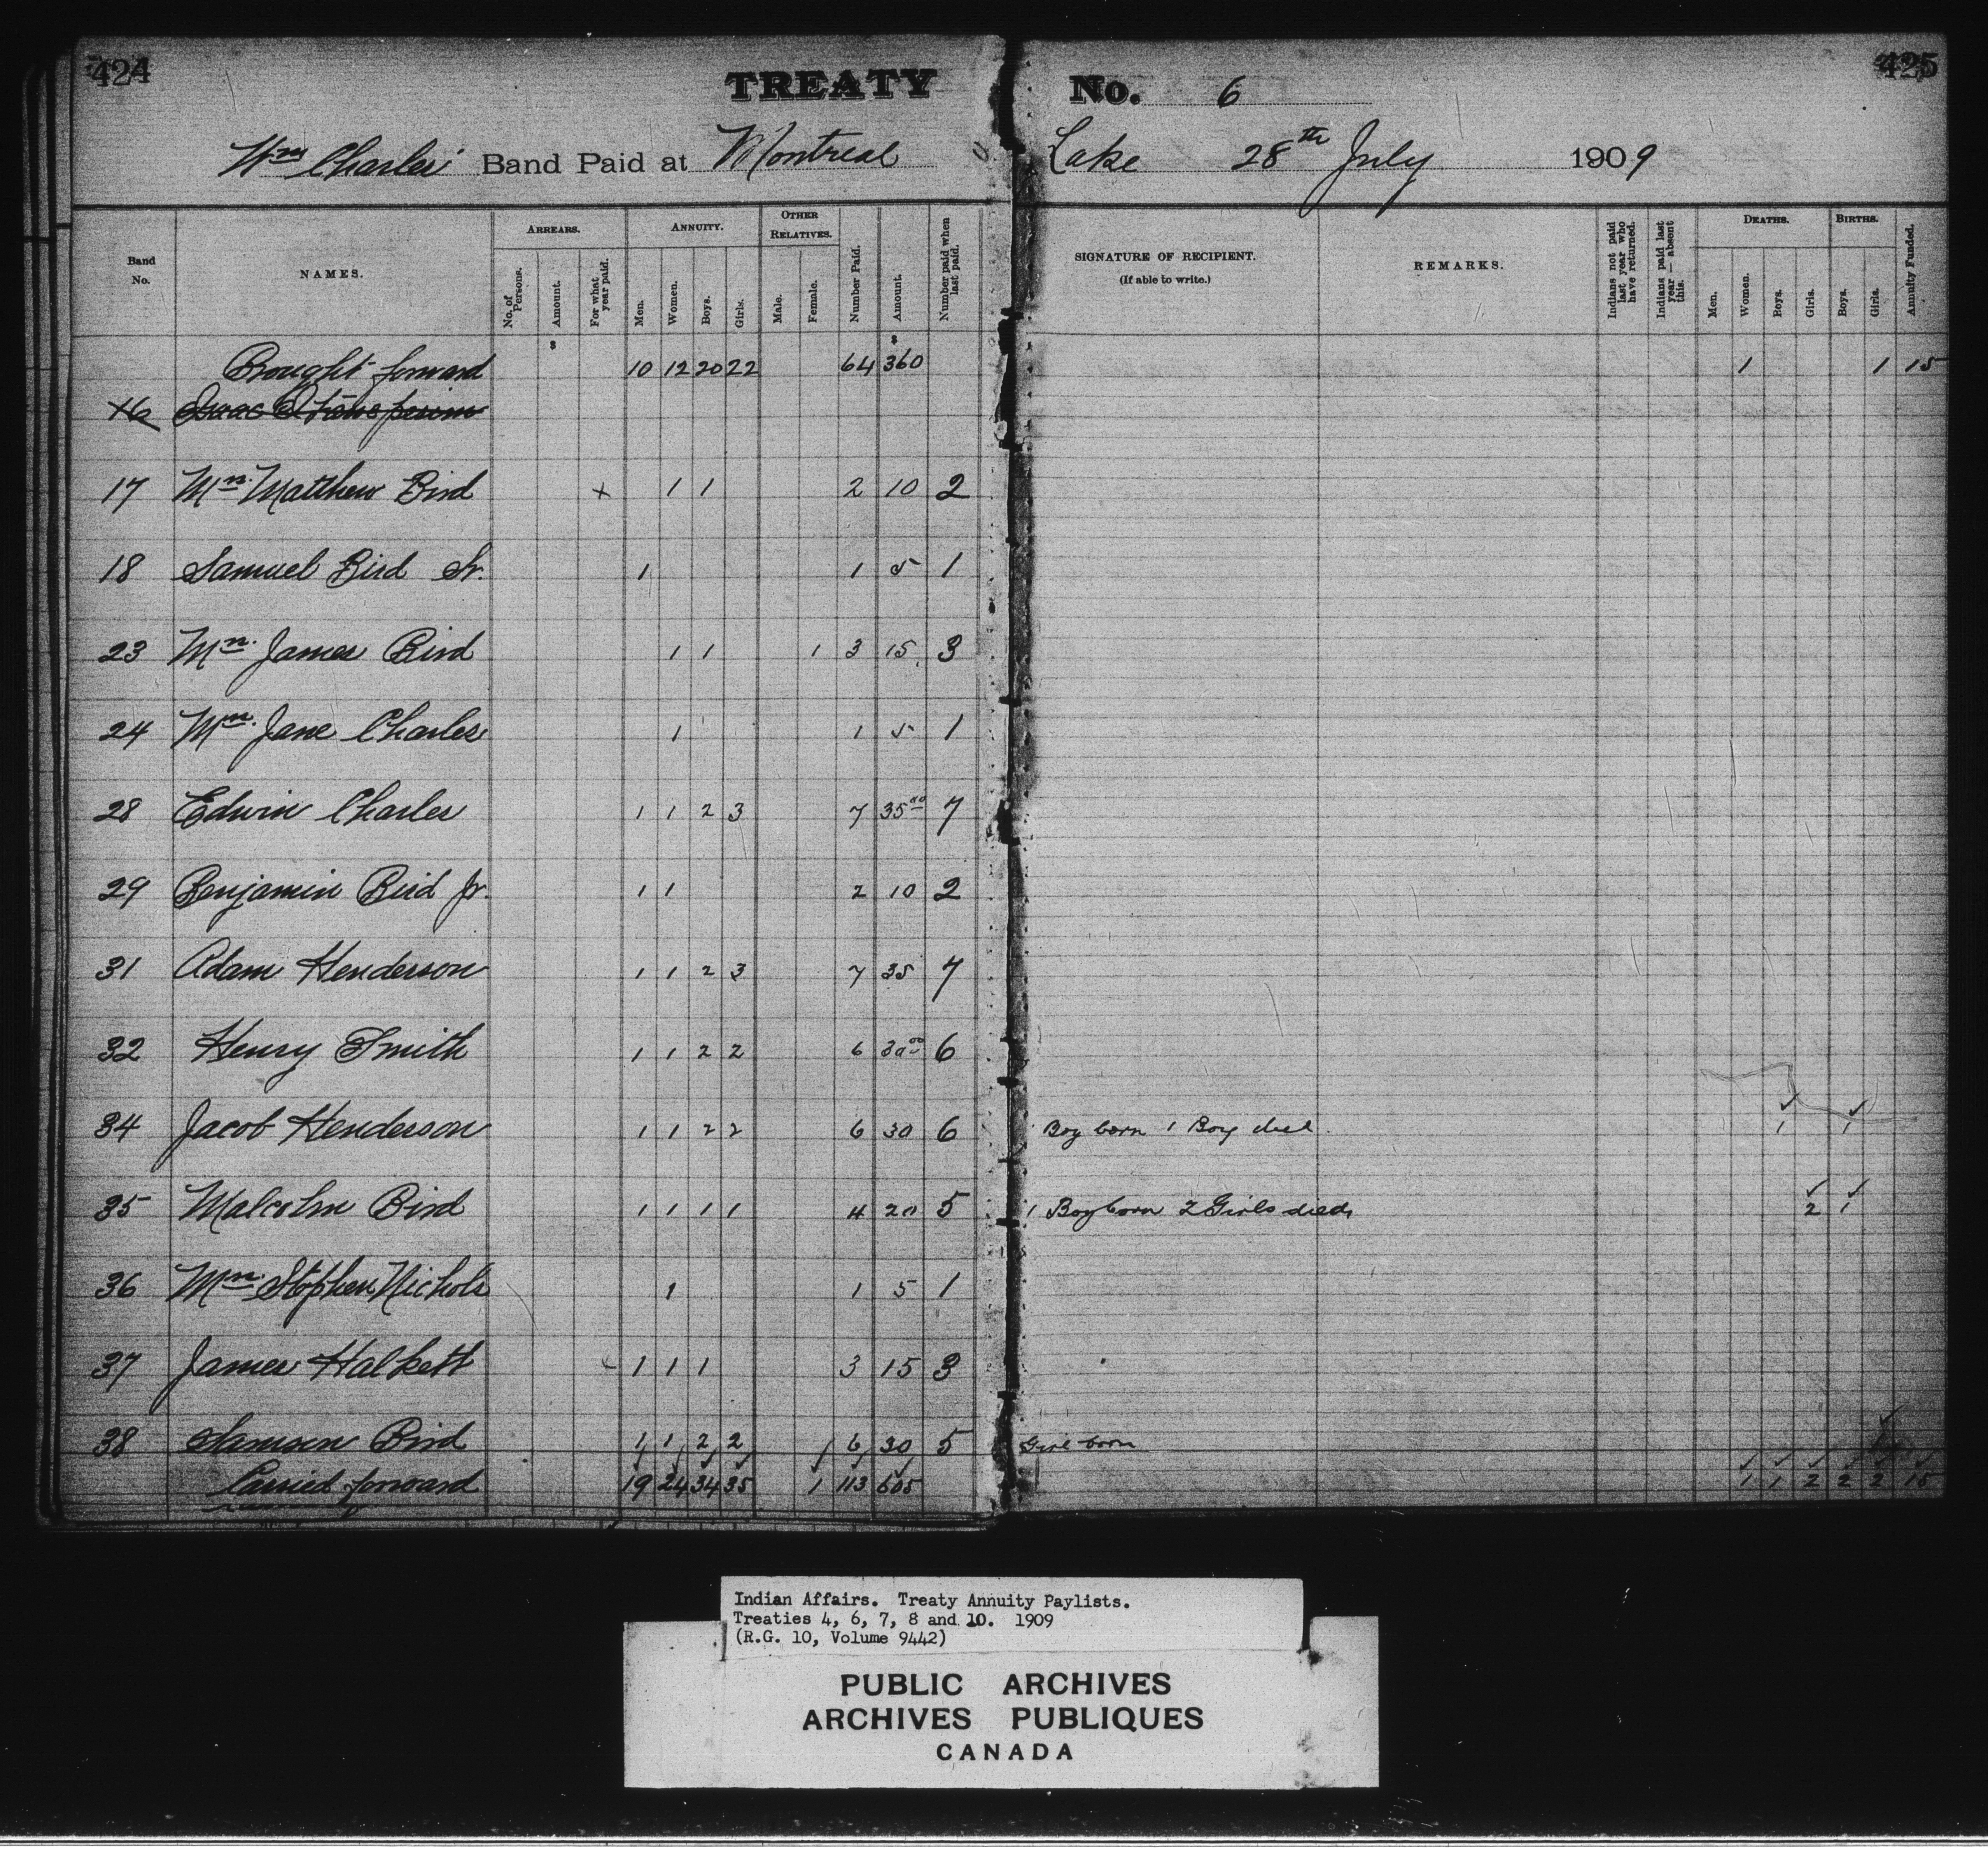 424 TREATY No. 6 425
Wm Charles' Band Paid at Montreal Lake 28th July 1909
Band No. NAMES. ARREARS. No. of Persons. Amount. For what year paid. ANNUITY. Men. Women. Boys. Girls. OTHER RELATIVES. Male. Female. Number Paid. Amount. Number paid when last paid. SIGNATURE OF RECIPIENT. (If able to write.) REMARKS. Indians not paid last year who have returned. Indians paid last year — absent this. DEATHS. Men. Women. Boys. Girls. BIRTHS. Boys. Girls. Annuity Funded.
$ $
Brought forward 10 12 20 22 64 360 1 1 15
16 Isaac
17 Mrs. Matthew Bird x 1 1 2 10 2
18 Samuel Bird Sr. 1 1 5 1
23 Mrs. James Bird 1 1 1 3 15 3
24 Mrs. Jane Charles 1 1 5 1
28 Edwin Charles 1 1 2 3 7 35 00 7
29 Benjamin Bird Jr. 1 1 2 10 2
31 Adam Henderson 1 1 2 3 7 35 7
32 Henry Smith 1 1 2 2 6 30 00 6
34 Jacob Henderson 1 1 2 2 6 30 6 1 Boy born 1 Boy died. 1 1
35 Malcolm Bird 1 1 1 1 4 20 5 1 Boy born 2 Girls died, 2 1
36 Mrs. Stephen Nichols 1 1 5 1
37 James Halkett 1 1 1 3 15 3
38 Samson Bird 1 1 2 2 6 30 5 Girl born 1
Carried forward 19 24 34 35 1 113 605 1 1 2 2 2 15
Indian Affairs. Treaty Annuity Paylists.
Treaties 4, 6, 7, 8 and 10. 1909
(R.G. 10, Volume 9442)
PUBLIC ARCHIVES
ARCHIVES PUBLIQUES
CANADA